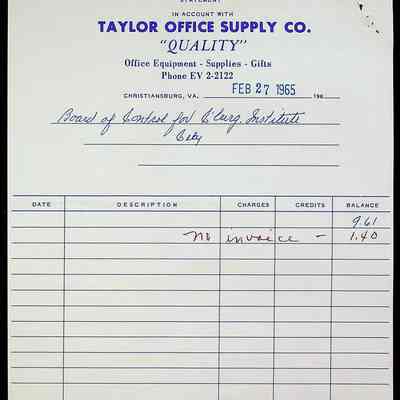 STATEMENT
IN ACCOUNT WITH
TAYLOR OFFICE SUPPLY CO.
"QUALITY"
Office Equipment - Supplies - Gifts
Phone EV 2-2122
CHRISTIANSBURG, VA. FEB 27 1965 196
Board of Control for C'burg. Institute
City
DATE DESCRIPTION CHARGES CREDITS BALANCE
9.61
no invoice - 1.40